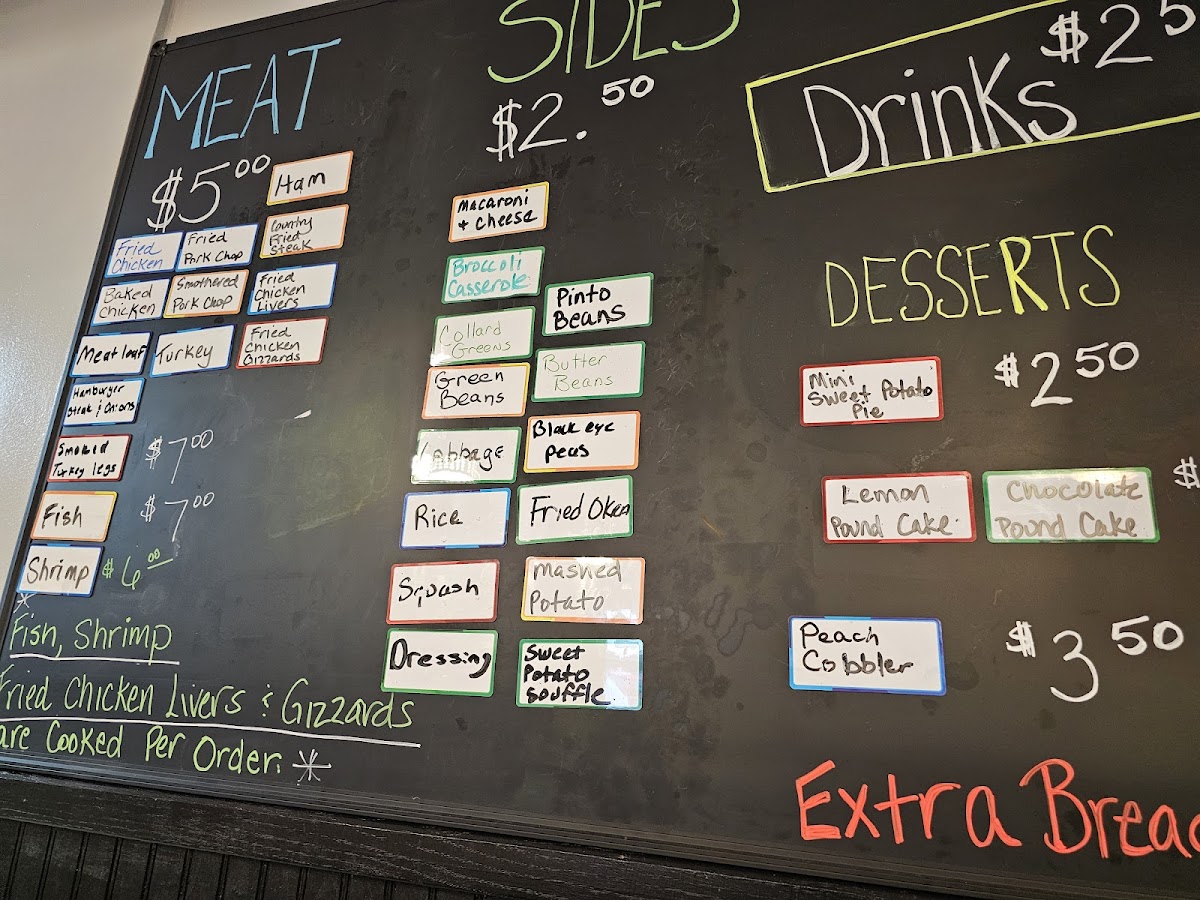 MEAT
$5.00
Ham
Fried
Chicken
Fried
Pork Chop
Country
Fried
Steak
Baked
Chicken
Smothered
Pork Chop
Fried
Chicken
Livers
Meat loaf
Turkey
Fried
Chicken
Gizzards
Hamburger
Steak & Onions
Smoked
Turkey legs
$7.00
Fish
$7.00
Shrimp
$6.00
*
Fish, Shrimp
Fried Chicken Livers & Gizzards
are Cooked Per Order. *
SIDES
$2.50
Macaroni
+ cheese
Broccoli
Casserole
Pinto
Beans
Collard
Greens
Butter
Beans
Green
Beans
Black eye
peas
Cabbage
Rice
Fried Okra
Squash
Mashed
Potato
Dressing
Sweet
Potato
Souffle
Drinks $2.5
DESSERTS
Mini
Sweet Potato
Pie
$2.50
Lemon
Pound Cake
Chocolate
Pound Cake
$
Peach
Cobbler
$3.50
Extra Bread